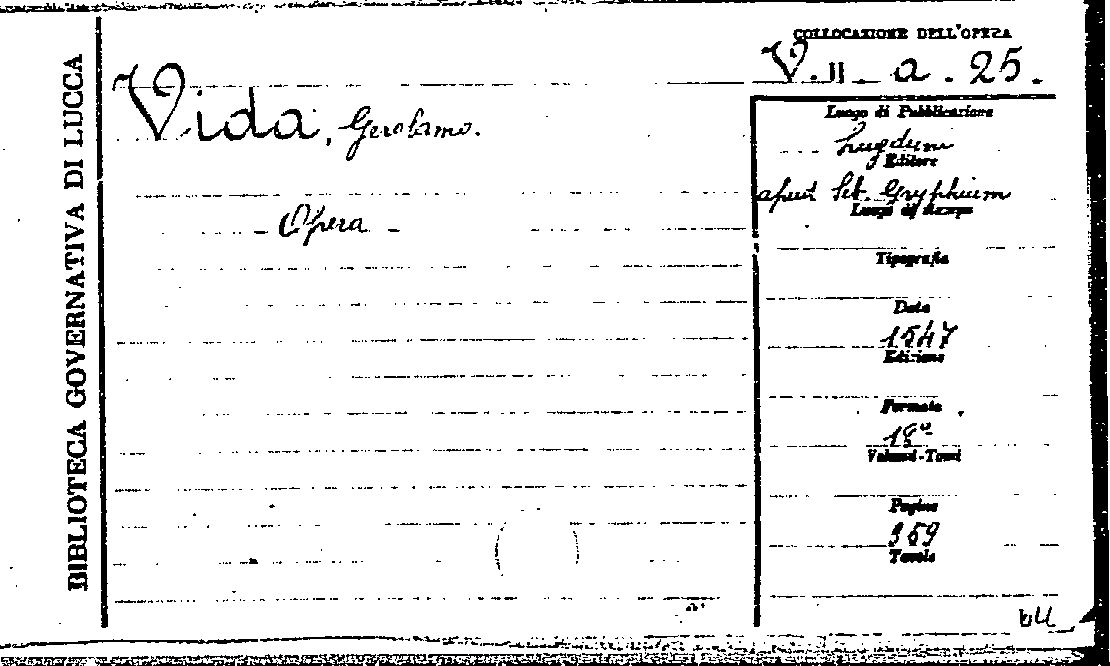 BIBLIOTECA GOVERNATIVA DI LUCCA
Vida, Gerolamo.
- Opera -
COLLOCAZIONE DELL'OPERA
V. II. a. 25.
Luogo di Pubblicazione
Lugduni
Editore
apud Seb. Gryphium
Luogo di Stampa
Tipografia
Data
1547
Edizione
Formato
18º
Volumi-Tomi
Pagine
359
Tavole